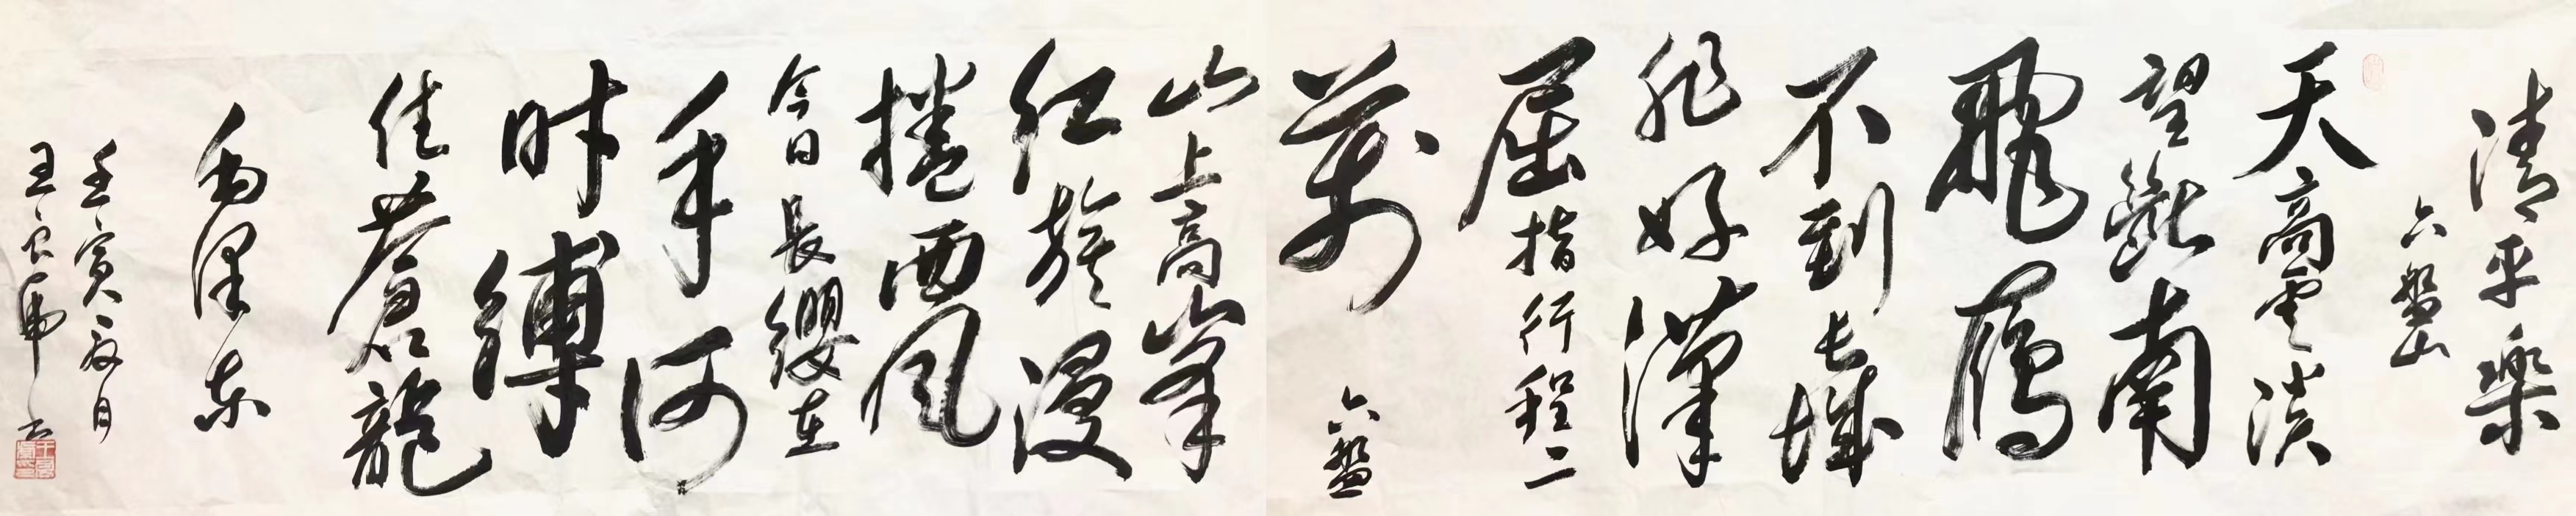 清平樂
六盤山
天高雲淡
望斷南
飛鴈
不到長城
非好漢
屈指行程二
萬六盤
山上高峯
紅旗漫
捲西風
今日長纓在
手何
時縛
住蒼龍
毛澤東
壬寅月
王良虎